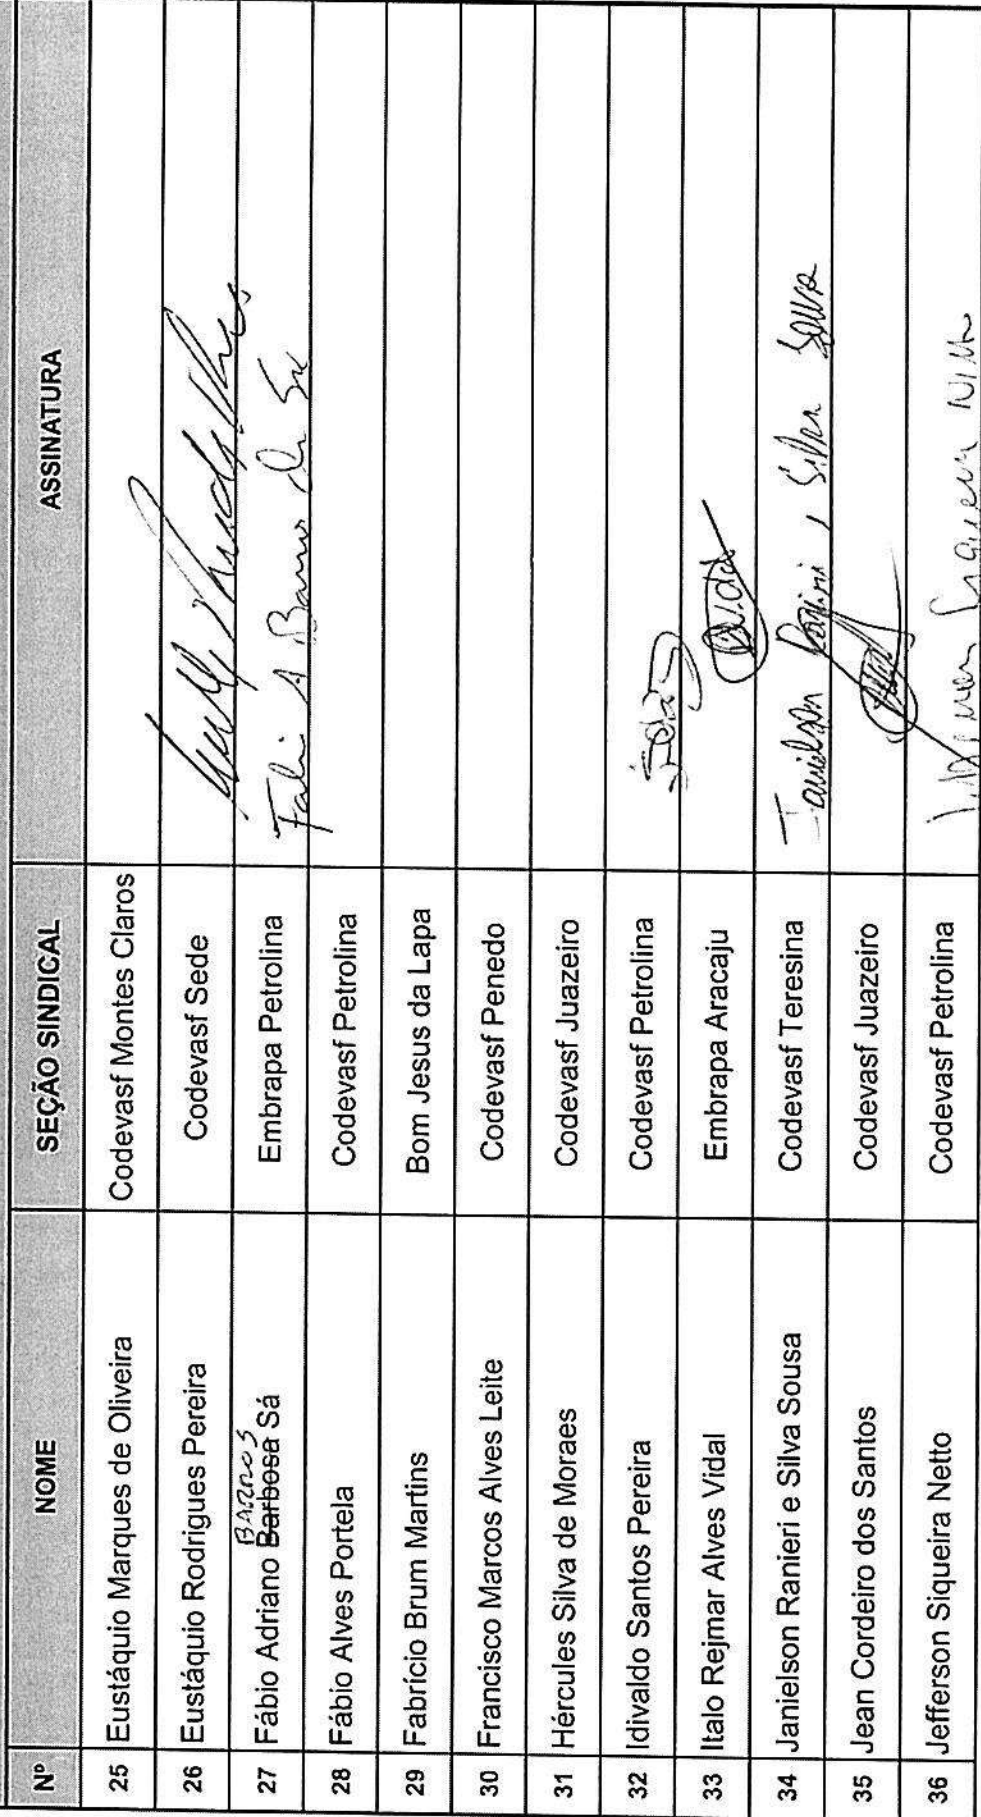 Nº NOME SEÇÃO SINDICAL ASSINATURA
25 Eustáquio Marques de Oliveira Codevasf Montes Claros
26 Eustáquio Rodrigues Pereira Codevasf Sede
BARROS
27 Fábio Adriano Barbosa Sá Embrapa Petrolina Fabio A Barros de Sá
28 Fábio Alves Portela Codevasf Petrolina
29 Fabrício Brum Martins Bom Jesus da Lapa
30 Francisco Marcos Alves Leite Codevasf Penedo
31 Hércules Silva de Moraes Codevasf Juazeiro
32 Idivaldo Santos Pereira Codevasf Petrolina
33 Italo Rejmar Alves Vidal Embrapa Aracaju
34 Janielson Ranieri e Silva Sousa Codevasf Teresina Janielson Ranieri e Silva Sousa
35 Jean Cordeiro dos Santos Codevasf Juazeiro
36 Jefferson Siqueira Netto Codevasf Petrolina Jefferson Siqueira Netto